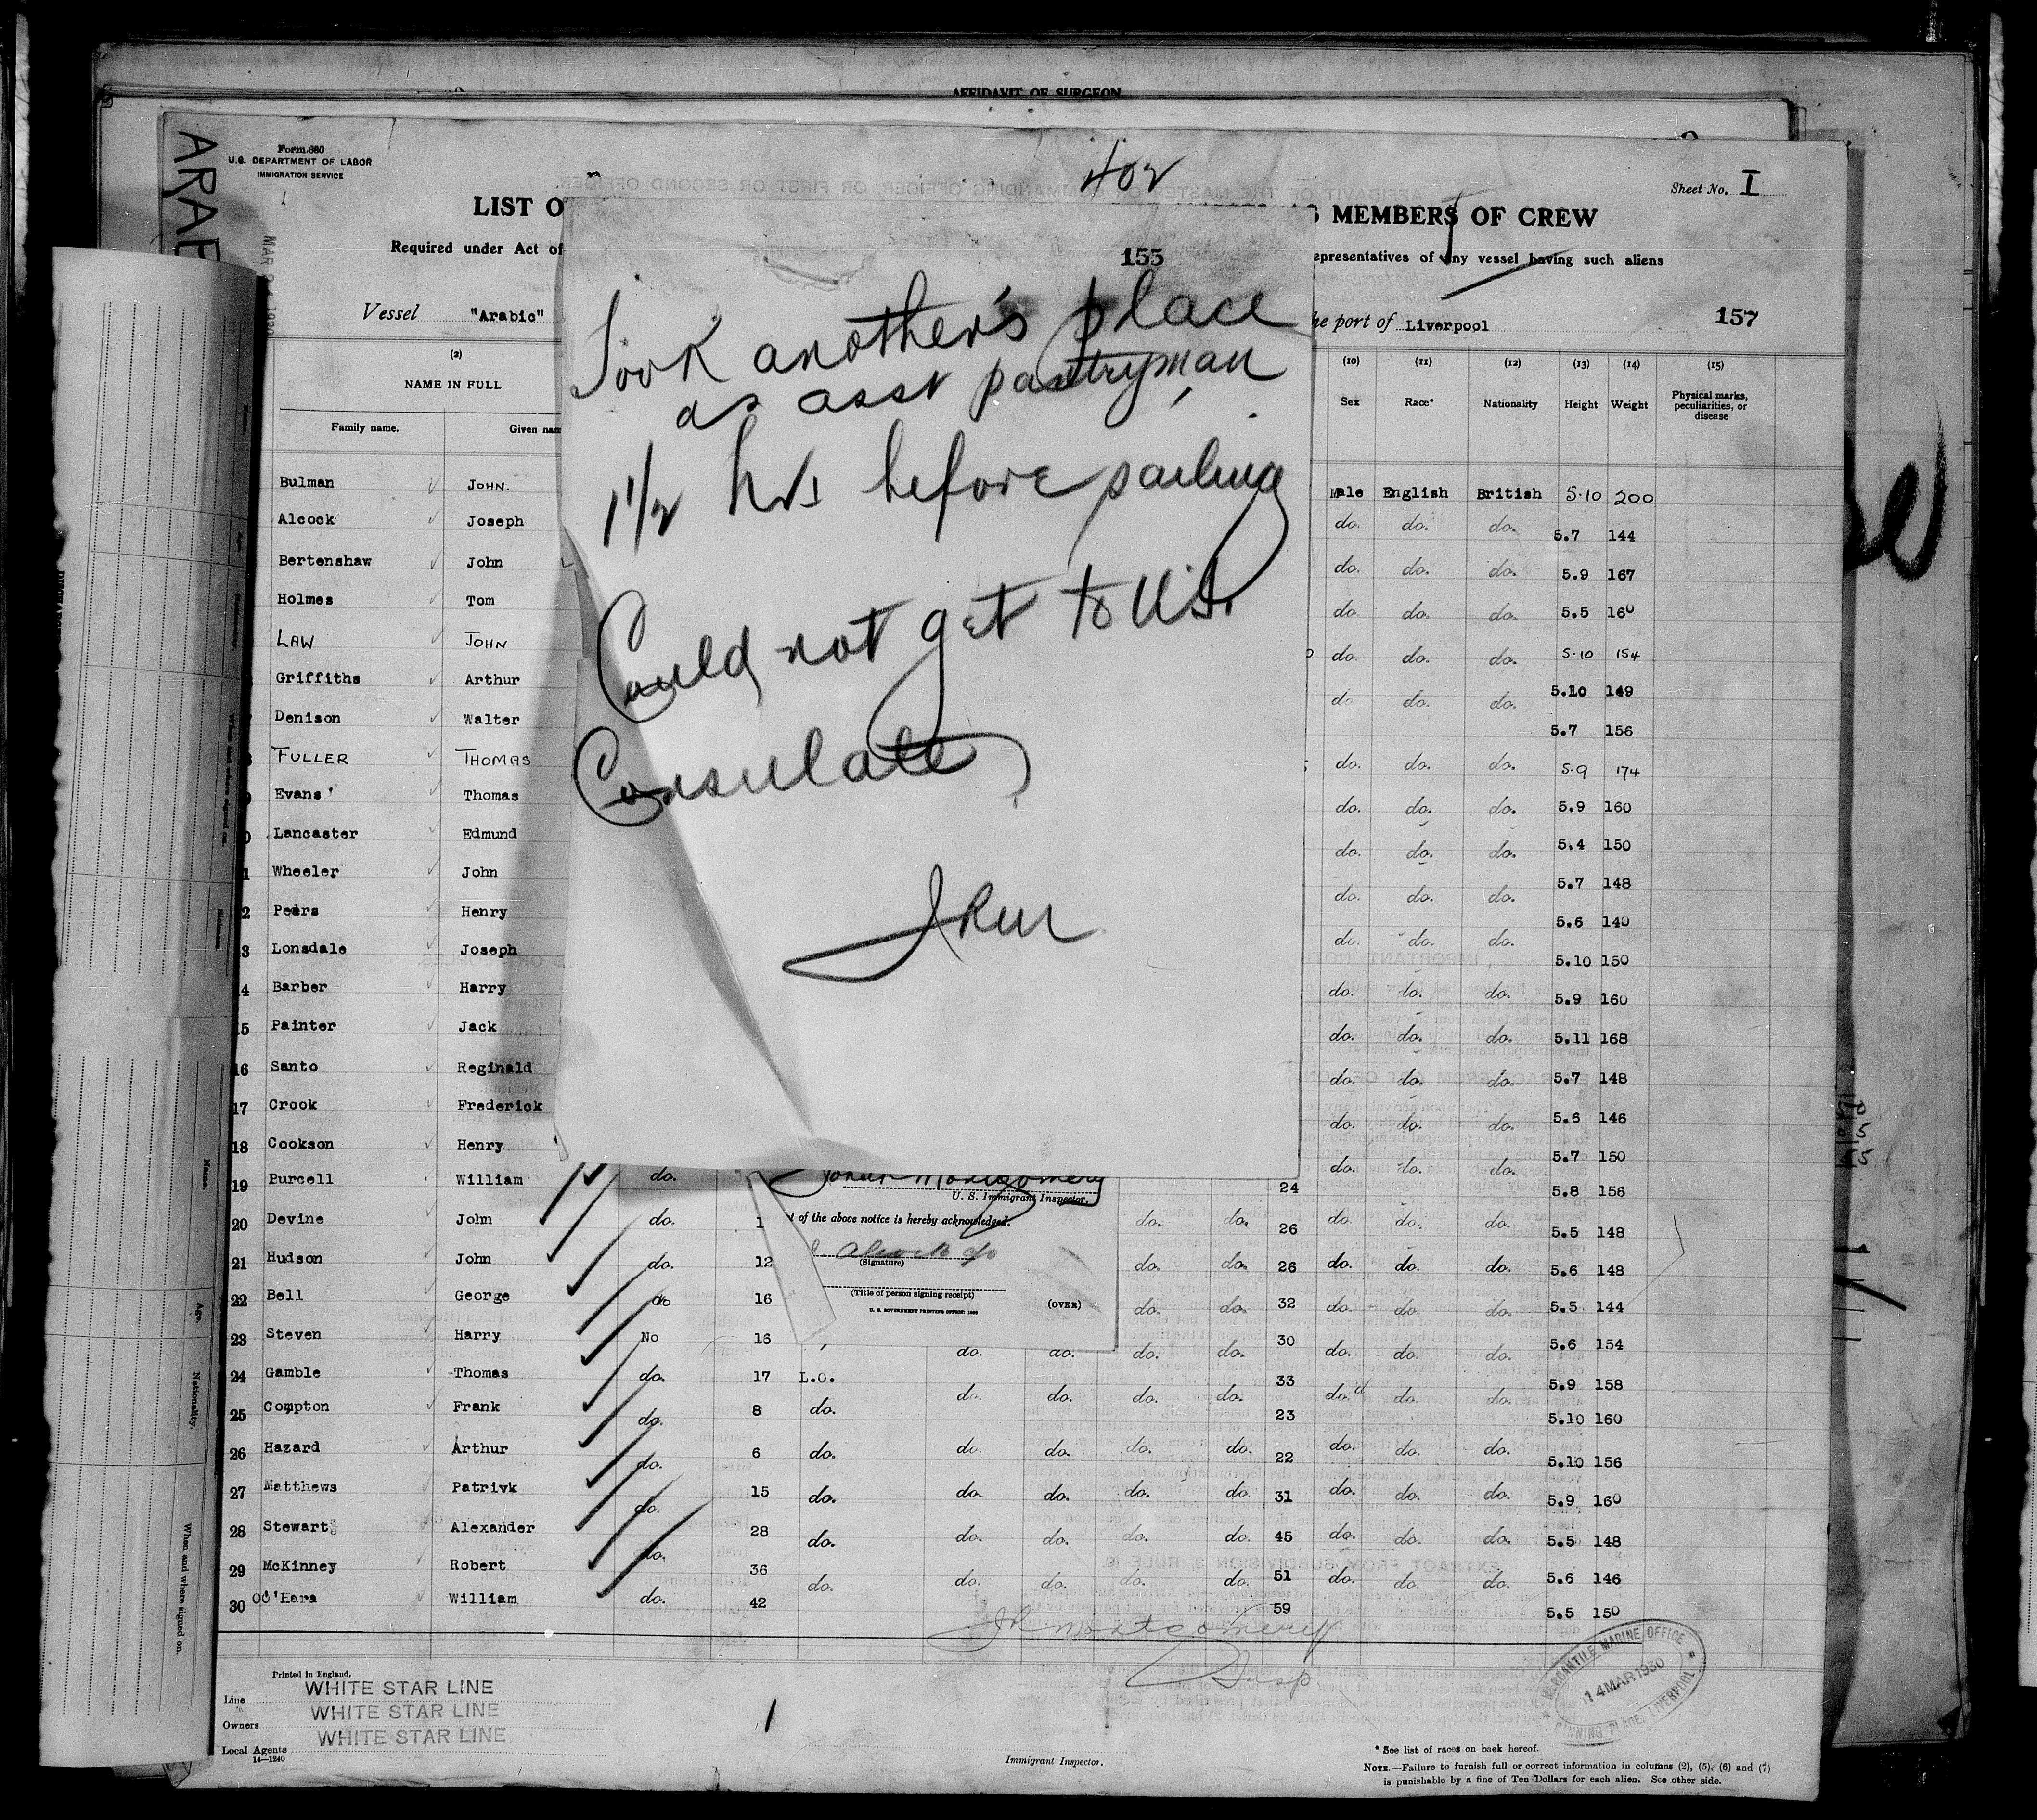 AFFIDAVIT OF SURGEON
Form 680
U.S. DEPARTMENT OF LABOR
IMMIGRATION SERVICE
402
Sheet No. I
LIST O
S MEMBERS OF CREW
Required under Act of
epresentatives of any vessel having such aliens
155
157
Vessel "Arabic"
he port of Liverpool
Took another's place
as asst pantryman
1 1/2 hrs before sailing
Could not get to U.S.
Consulate
JRM
(2) (10) (11) (12) (13) (14) (15)
NAME IN FULL Sex Race* Nationality Height Weight Physical marks, peculiarities, or disease
Family name. Given nam
Bulman JOHN. Male English British 5-10 200
Alcock Joseph do. do. do. 5.7 144
Bertenshaw John do. do. do. 5.9 167
Holmes Tom do do. do. 5.5 160
LAW JOHN do. do. do. 5-10 154
Griffiths Arthur do do. do. 5.10 149
Denison Walter 5.7 156
FULLER THOMAS do. do. do. 5-9 174
Evans Thomas do. do. do. 5.9 160
Lancaster Edmund do. do. do. 5.4 150
Wheeler John do. do. do. 5.7 148
2 Peers Henry do. do. do. 5.6 140
3 Lonsdale Joseph do. do. do. 5.10 150
4 Barber Harry do. do. do. 5.9 160
5 Painter Jack do. do. do. 5.11 168
16 Santo Reginald do. do. do. 5.7 148
17 Crook Frederick do. do. do. 5.6 146
18 Cookson Henry do. do. do. 5.7 150
19 Burcell William do. 24 5.8 156
20 Devine John do. 1 do. do. 26 do. do. do. 5.5 148
21 Hudson John do. 12 do. do. 26 do. do. do. 5.6 148
22 Bell George do 16 do. do. 32 do. do. do. 5.5 144
23 Steven Harry No 16 do. do. do. do. 30 do. do. do. 5.6 154
24 Gamble Thomas do. 17 L.O. do. do. do. do. 33 do. do. do. 5.9 158
25 Compton Frank do. 8 do. 23 5.10 160
26 Hazard Arthur do. 6 do. do. do. do. do. 22 do. do. do. 5.10 156
27 Matthews Patrivk do. 15 do. do. do. do. do. 31 do. do. do. 5.9 160
28 Stewart Alexander do. 28 do. do. do. do. do. 45 do. do. do. 5.5 148
29 McKinney Robert 36 do. do. do. do. do. 51 do. do. do. 5.6 146
30 O'Hara William do. 42 59 5.5 150
U. S. Immigrant Inspector.
t of the above notice is hereby acknowledged.
(Signature)
(Title of person signing receipt)
U. S. GOVERNMENT PRINTING OFFICE: 1929
(OVER)
JR Montgomery
Insp
MERCANTILE MARINE OFFICE
14 MAR 1930
CANNING PLACE, LIVERPOOL
Printed in England.
Line WHITE STAR LINE
Owners WHITE STAR LINE
Local Agents WHITE STAR LINE
14—1240
1
Immigrant Inspector.
* See list of races on back hereof.
NOTE.—Failure to furnish full or correct information in columns (2), (5), (6) and (7)
is punishable by a fine of Ten Dollars for each alien. See other side.